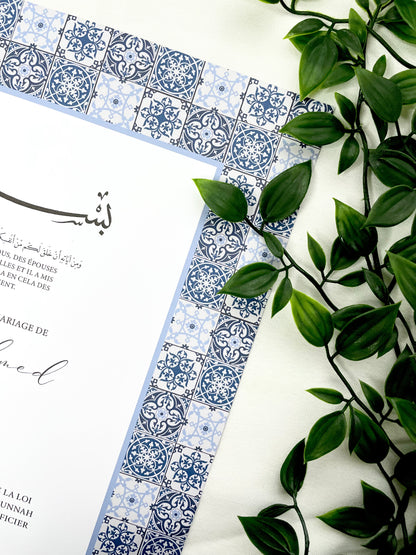 بسـ
وَمِنْ آيَاتِهِ أَنْ خَلَقَ لَكُم مِّنْ أَنفُسِكُ
OUS, DES ÉPOUSES
ELLES ET IL A MIS
LA EN CELA DES
ENT.
ARIAGE DE
med
LA LOI
UNNAH
FICIER